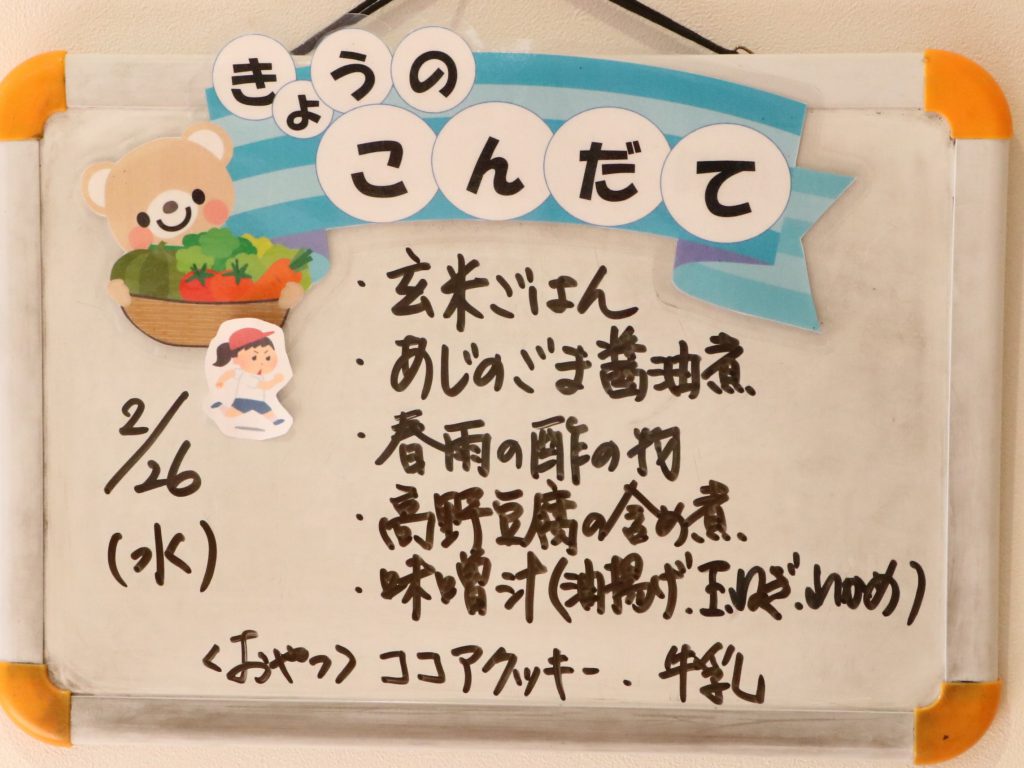 きょうの
こんだて
・玄米ごはん
・あじのごま醤油煮
・春雨の酢の物
2/26
・高野豆腐の含め煮
(水)
・味噌汁(油揚げ、玉ねぎ、わかめ)
<おやつ> ココアクッキー、牛乳